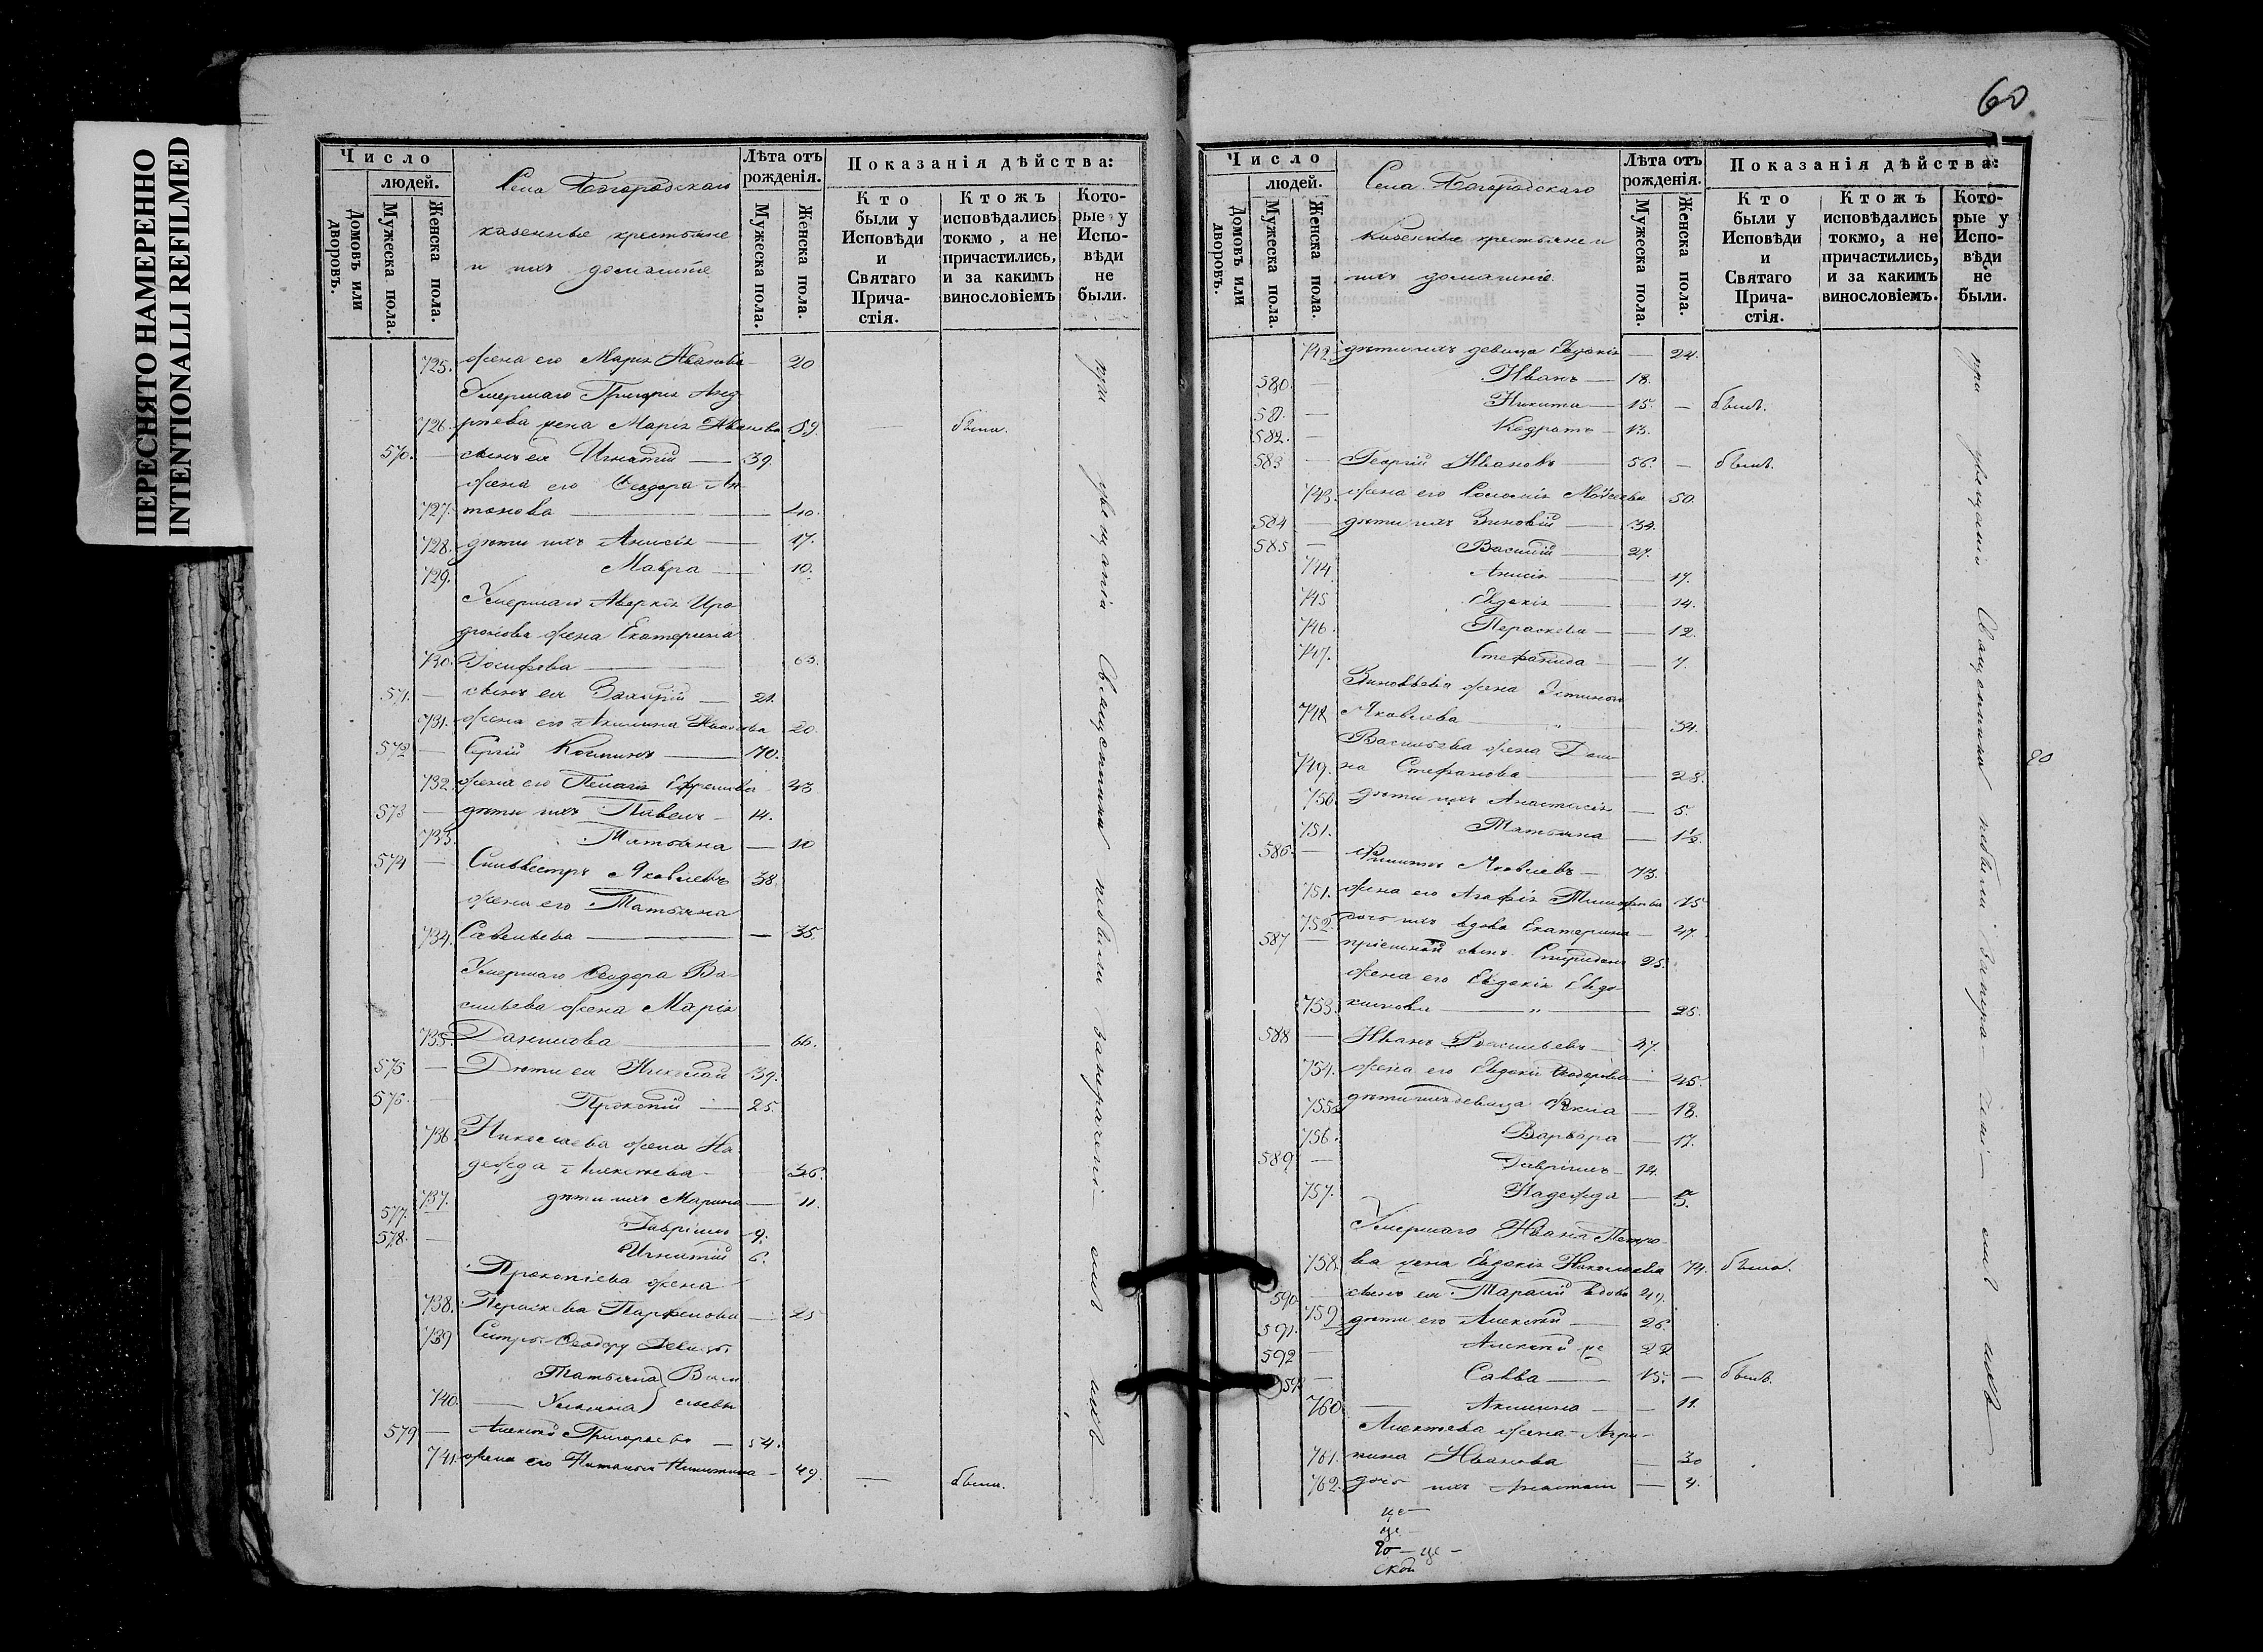 ПЕРЕСНЯТО НАМЕРЕННО
INTENTIONALLI REFILMED
Число
людей.
Домовъ или дворовъ.
Мужеска пола.
Женска пола.
Села Богородскаго
казенные крестьяне
и ихъ домашніе
Лѣта отъ рожденія.
Мужеска пола.
Женска пола.
Показанія дѣйства:
Кто были у Исповѣди и Святаго Причастія.
Ктожъ исповѣдались токмо, а не причастились, и за какимъ винословіемъ
Которые у Исповѣди не были.
725. жена его Марія Иванова 20
Умершаго Григорія Анд-
726. реева жена Марія Иванова 59. — была.
570. — сынъ ея Игнатій — 39.
жена его Ѳеодора Ан-
727. тонова — 40.
728. дѣти ихъ Анисія — 17.
729. Мавра — 10.
Умершаго Аверкія Иро-
діонова жена Екатерина
730. Іосифова — 63.
571. — сынъ ея Захарій — 21.
731. жена его Акилина Иванова 20.
572 — Сергій Косминъ — 70.
732. жена его Пелагія Ефремова 43
573 — дѣти ихъ Павелъ — 14.
733. Татьяна — 10
574 — Сильвестръ Яковлевъ 38.
жена его Татьяна
734. Савельева — 35.
Умершаго Ѳеодора Ва-
сильева жена Марія
735. Данилова — 66.
575 — Дѣти ея Николай 39.
576. — Прокопій — 25.
736. Николаева жена На-
дежда Алексѣева — 36.
737. дѣти ихъ Марина — 11.
577. Гавріилъ 9.
578. — Игнатій 6.
Прокопіева жена
738. Параскева Парфенова — 25
739 Сестры Ѳеодору девицы
Татьяна Васи-
740. — Ульяна сльевы
579 — Алексѣй Григорьевъ — 54.
741. жена его Наталья Никитина — 49. — была.
60
Число
людей.
Домовъ или дворовъ.
Мужеска пола.
Женска пола.
Села Богородскаго
казенные крестьяне и
ихъ домашніе
Лѣта отъ рожденія.
Мужеска пола.
Женска пола.
Показанія дѣйства:
Кто были у Исповѣди и Святаго Причастія.
Ктожъ исповѣдались токмо, а не причастились, и за какимъ винословіемъ.
Которые у Исповѣди не были.
742. дѣти ихъ девица Евдокія — 24.
580. — Иванъ — 18.
581. — Никита — 15. — былъ.
582. — Кодратъ — 13.
583 — Георгій Ивановъ — 56. — былъ.
743. жена его Соломія Моѵсеева 50.
584 — дѣти ихъ Зиновій — 34.
585 — Василій — 27.
744. Анисія — 17.
745 Евдокія — 14.
746. Параскева — 12.
747. Стефанида — 7.
Зиновьева жена Устинья
748 Яковлева — 34.
Васильева жена Дом-
749. на Стефанова — 28.
750. дѣти ихъ Анастасія — 5.
751. Татьяна — 1½
586. — Филиппъ Яковлевъ — 73.
751. жена его Агафія Тимофеева 75
752. дочь ихъ вдова Екатерина — 47.
587 — пріемный сынъ Спиридонъ 25.
жена его Евдокія Евдо-
753. кимова — „ — 25.
588 — Иванъ Васильевъ — 47.
754. жена его Евдокія Ѳеодорова — 45.
755. дѣти ихъ девица Ѳекла — 18.
756. Варвара — 17.
589 — Гавріилъ — 14.
757. Надежда — 5.
Умершаго Ивана Петро-
758. ва жена Евдокія Николаева 74. была.
590 сынъ ея Тарасій вдовъ 49.
591. 759 дѣти его Алексѣй — 26.
592 — Алексѣй же 22
593 — Савва — 15. — былъ.
760 — Акилина — 11.
Алексѣева жена Агри-
761. пина Иванова — 30
762. дочь ихъ Анастасія — 4.